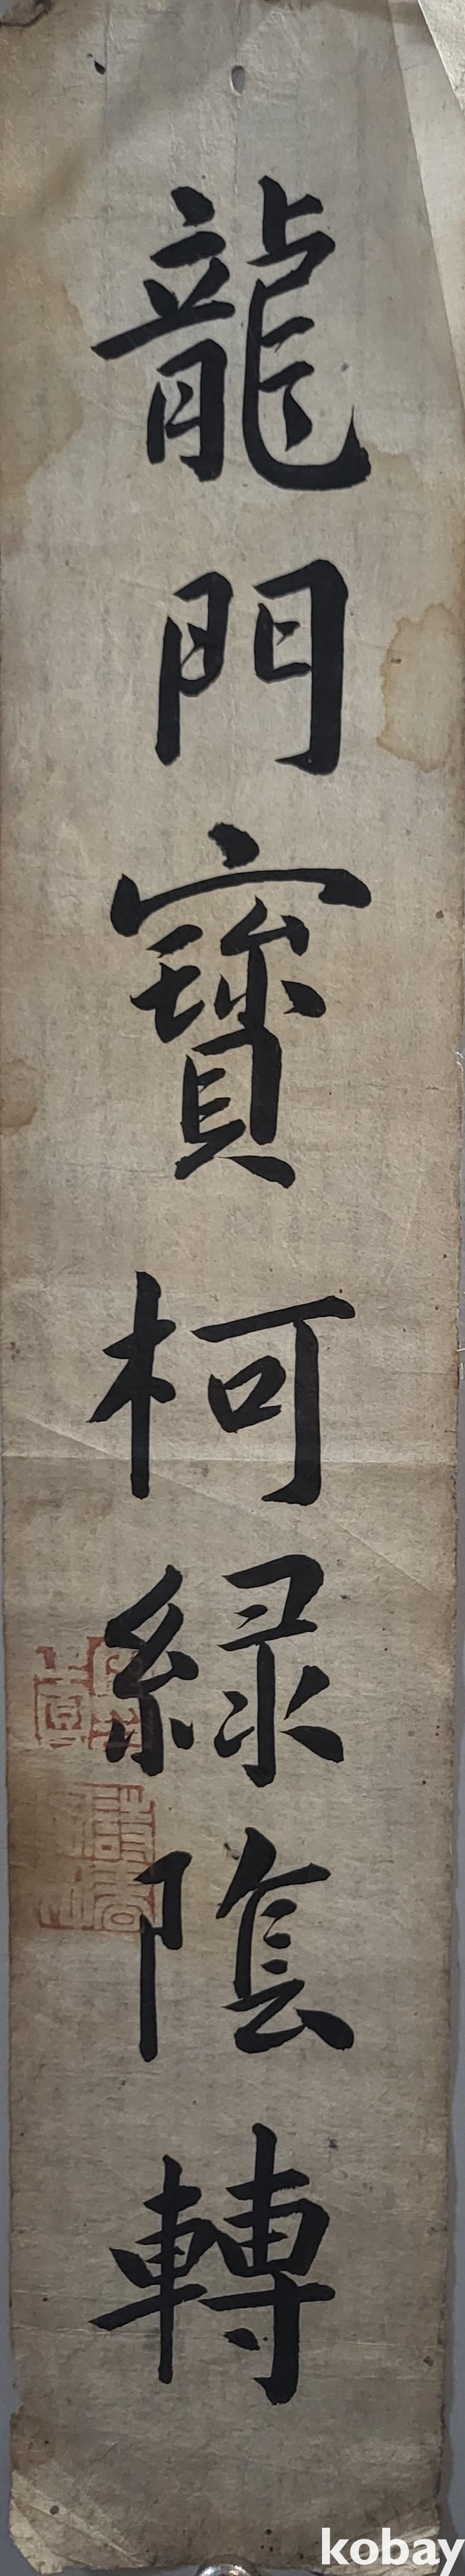 龍門寶柯綠陰轉
kobay